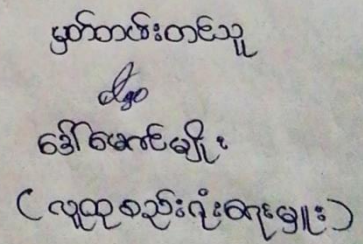 မှတ်တမ်းတင်သူ
ဒေါ်မောင်မျိုး
(လူထုစည်းရုံးရေးမှူး)